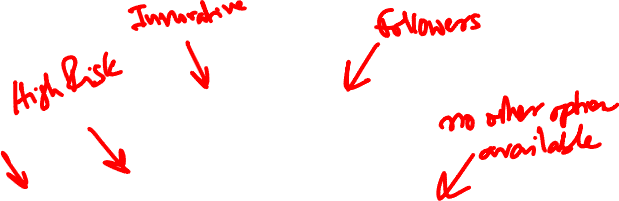 Innovative
Followers
High Risk
no other option
available